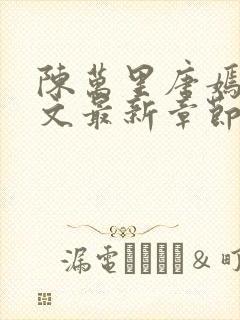 陳萬里唐嫣
文最新章節
漏電 & 町